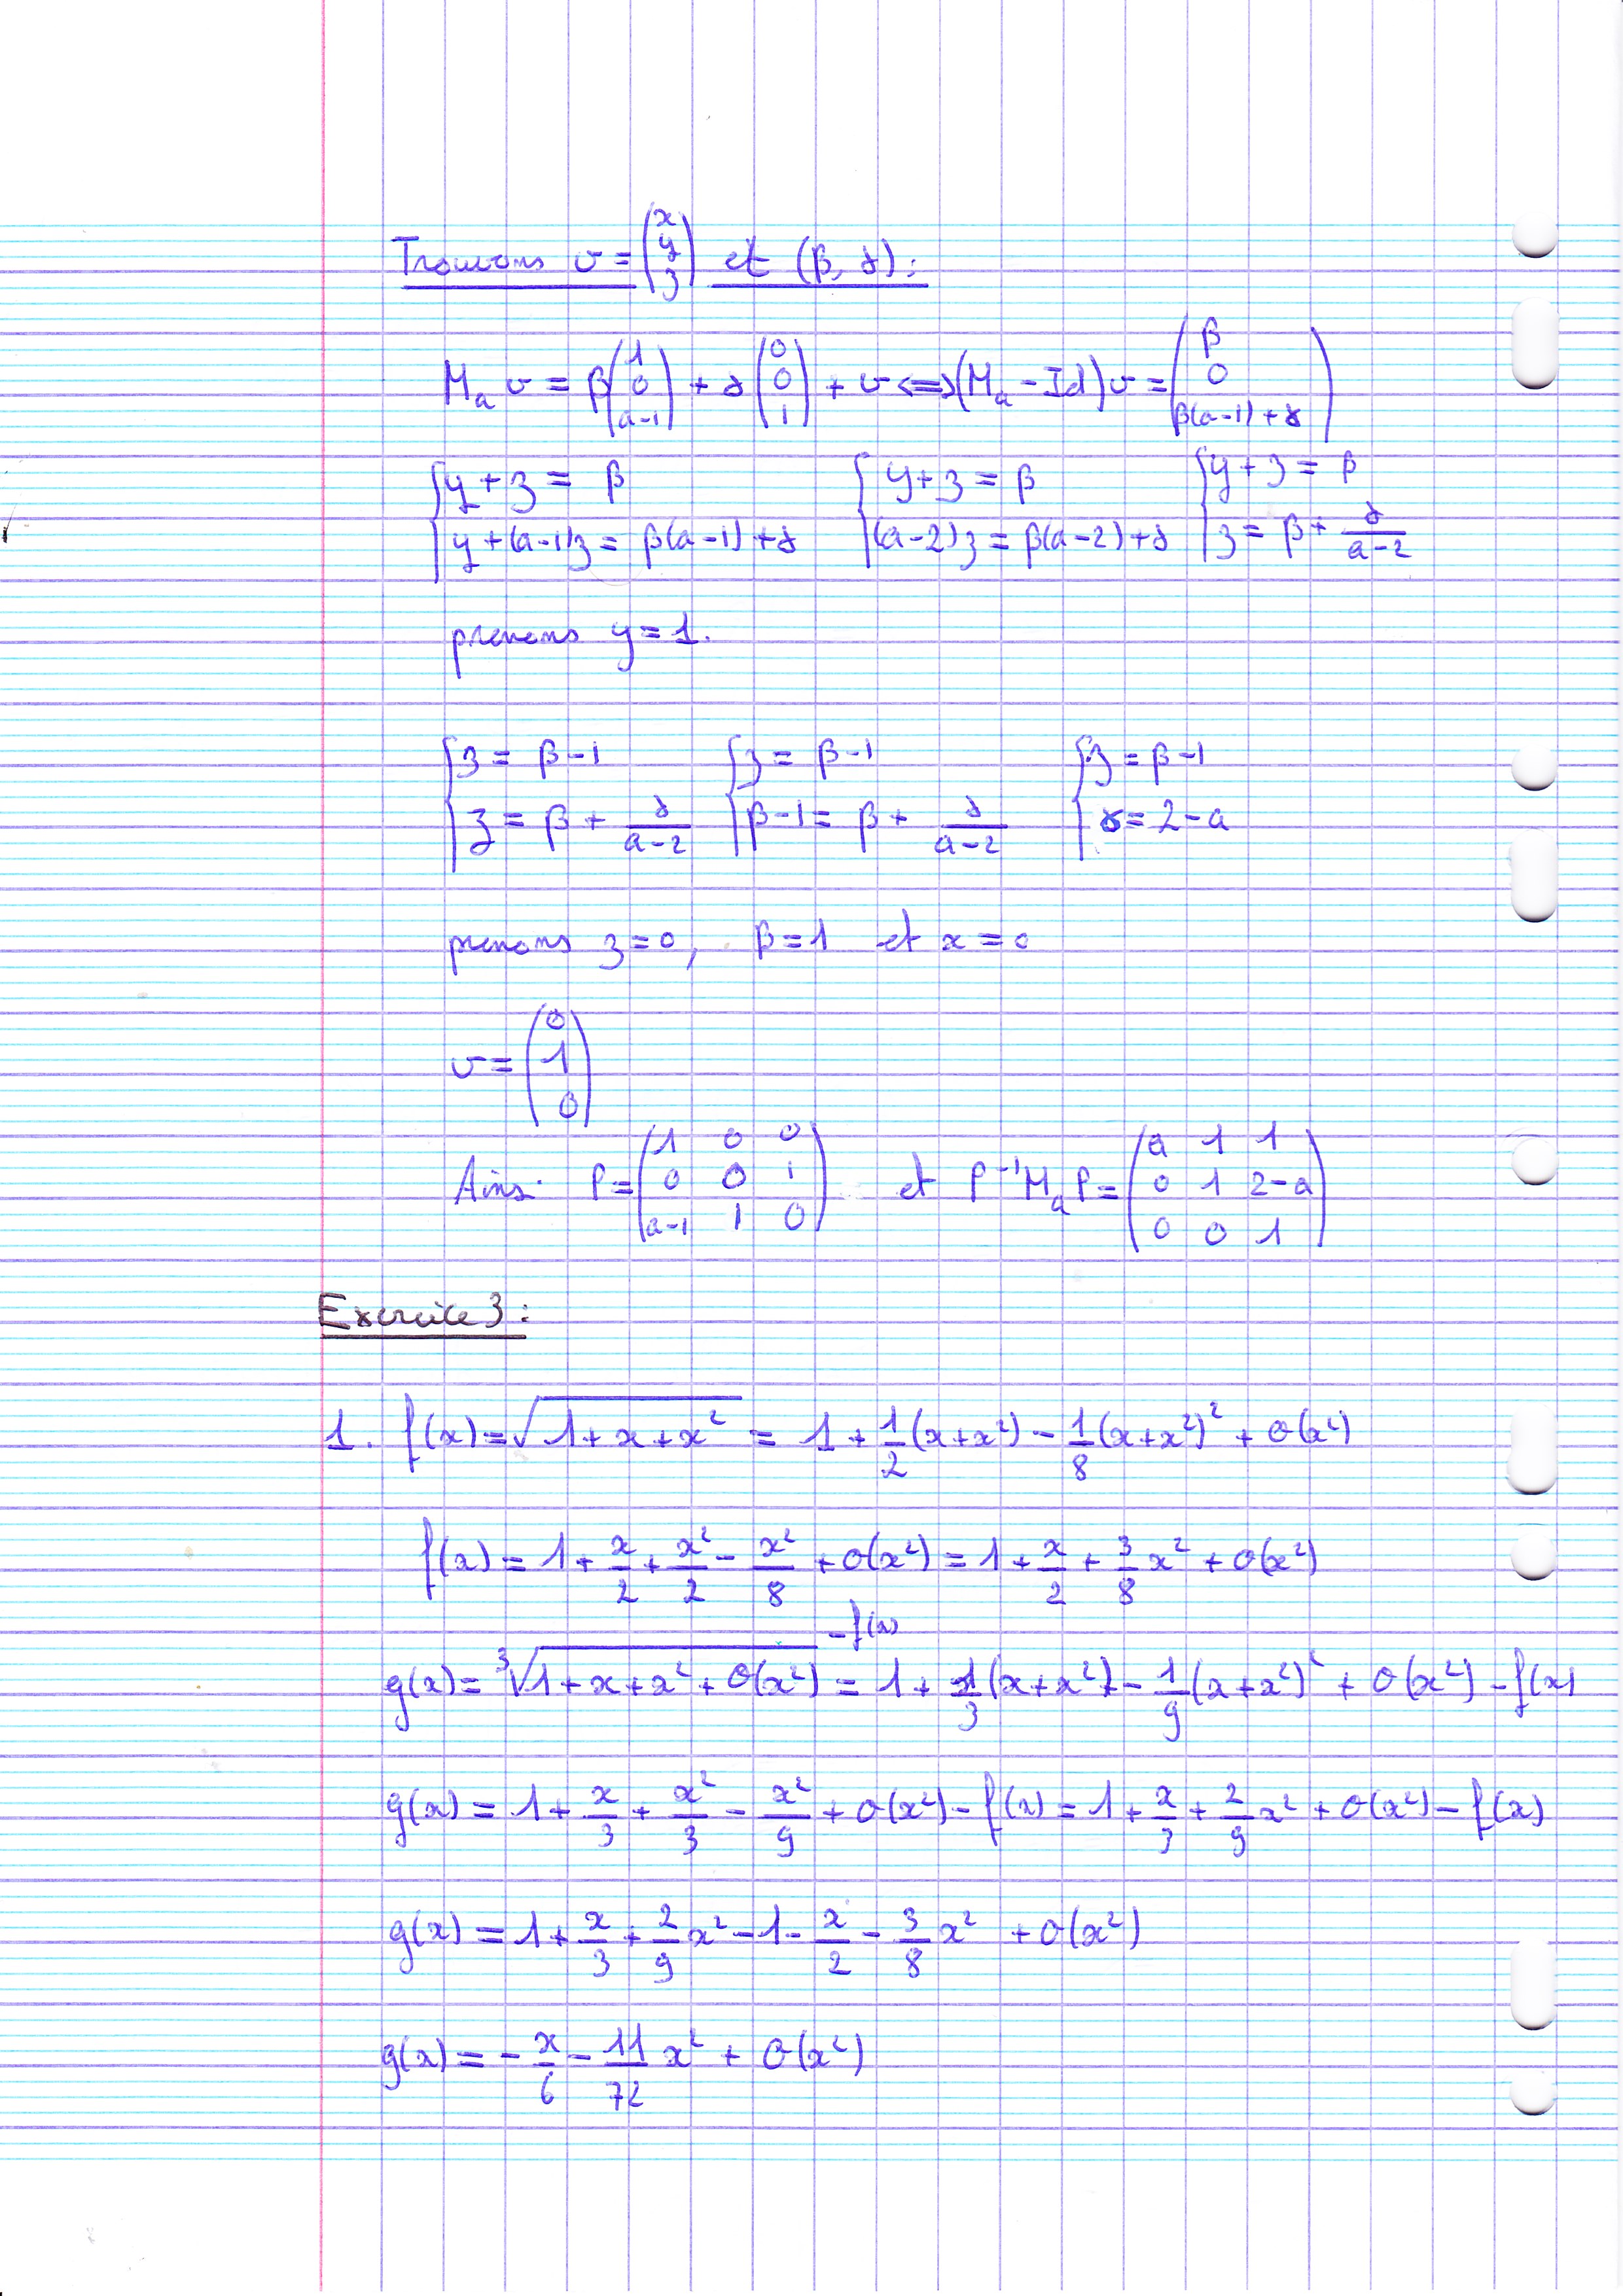 Trouvons v = (x y z) et (β, γ) :
M_a v = β(1 0 a-1) + γ(0 0 1) + v ⟺ (M_a - Id) v = (β 0 β(a-1)+γ)
{ y + z = β { y + z = β { y + z = β
{ y + (a-1)z = β(a-1) + γ { (a-2)z = β(a-2) + γ { z = β + γ/(a-2)
prenons y = 1.
{ z = β - 1 { z = β - 1 { z = β - 1
{ z = β + γ/(a-2) { β - 1 = β + γ/(a-2) { γ = 2 - a
prenons z = 0, β = 1 et x = 0
v = (0 1 0)
Ainsi P = (1 0 0 / 0 0 1 / a-1 1 0) et P⁻¹ M_a P = (a 1 1 / 0 1 2-a / 0 0 1)
Exercice 3 :
1. f(x) = √(1 + x + x²) = 1 + 1/2 (x + x²) - 1/8 (x + x²)² + o(x²)
f(x) = 1 + x/2 + x²/2 - x²/8 + o(x²) = 1 + x/2 + 3/8 x² + o(x²)
g(x) = ³√(1 + x + x² + o(x²)) - f(x) = 1 + 1/3 (x + x²) - 1/9 (x + x²)² + o(x²) - f(x)
g(x) = 1 + x/3 + x²/3 - x²/9 + o(x²) - f(x) = 1 + x/3 + 2/9 x² + o(x²) - f(x)
g(x) = 1 + x/3 + 2/9 x² - 1 - x/2 - 3/8 x² + o(x²)
g(x) = - x/6 - 11/72 x² + o(x²)